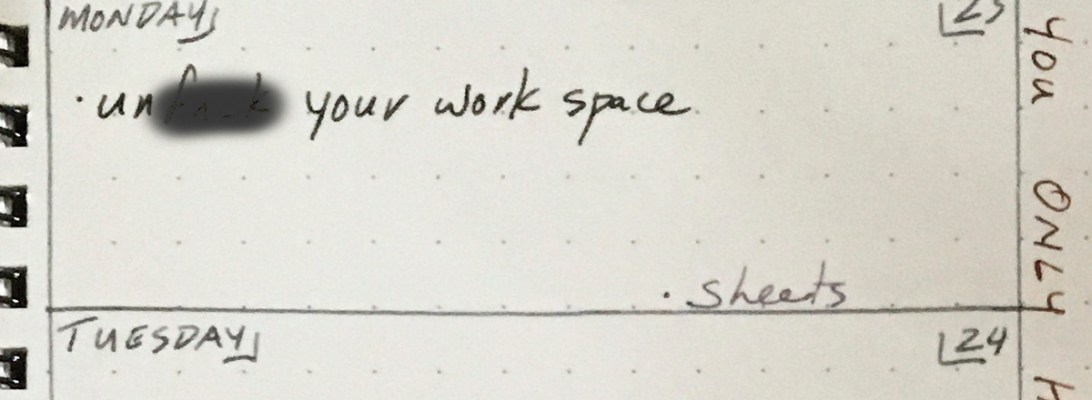 MONDAY 23
· un your work space
· sheets
TUESDAY 24
you ONLY